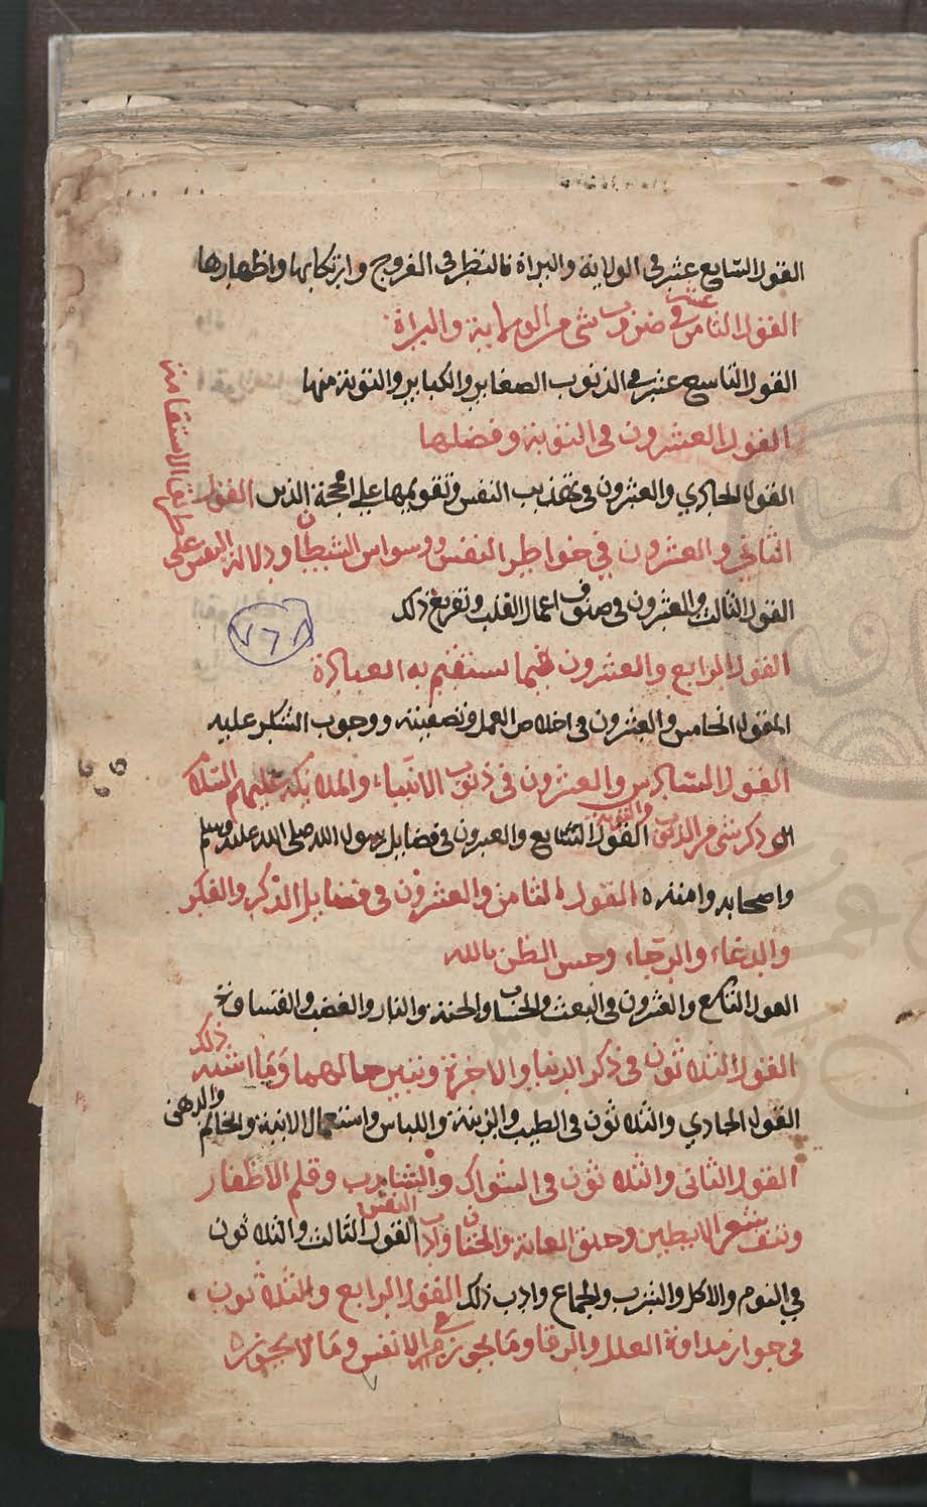 القول السابع عشر في الولاية والبراة بالنظر في الفروج وارتكابها واظهارها
القول الثامن عشر في ضروب شي من الولاية والبراة
القول التاسع عشر في الذنوب الصغاير والكباير والتوبة منها
القول العشرون في التوبة وفضلها
القول الحادي والعشرون في تهذيب النفس وتقويمها على محجة الدين القول
الثاني والعشرون في خواطر النفس ووسواس الشيطان ودلالة النفس على
طريق الاستقامة
القول الثالث والعشرون في صنوف اعمال القلب وتفريع ذلك
٧٦٨
القول الرابع والعشرون فيما يستفتح به العبادة
القول الخامس والعشرون في اخلاص العمل وتصفيته ووجوب الشكر عليه
القول السادس والعشرون في ذنوب الانبياء والملايكة عليهم السلام
ذكر شي من الذنوب والتوبة القول السابع والعشرون في فضايل رسول الله صلى الله عليه وسلم
واصحابه وامته القول الثامن والعشرون في فضايل الذكر والفكر
والدعاء والرجاء وحسن الظن بالله
القول التاسع والعشرون في البعث والحساب والجنة والنار والغضب والقساوة
القول الثلاثون في ذكر الدنيا والاخرة وتبيين حالهما وما اشبه ذلك
القول الحادي والثلاثون في الطيب والزينة واللباس واستعمال الانية والخاتم والدهن
القول الثاني والثلاثون في السواك والشارب وقلم الاظفار
ونتف شعر الابطين وحلق العانة والختان واداب النفس القول الثالث والثلاثون
في النوم والاكل والشرب والجماع وادب ذلك القول الرابع والثلاثون
في جواز مداواة العلل والرقا وما يجوز في الانفس وما لا يجوز